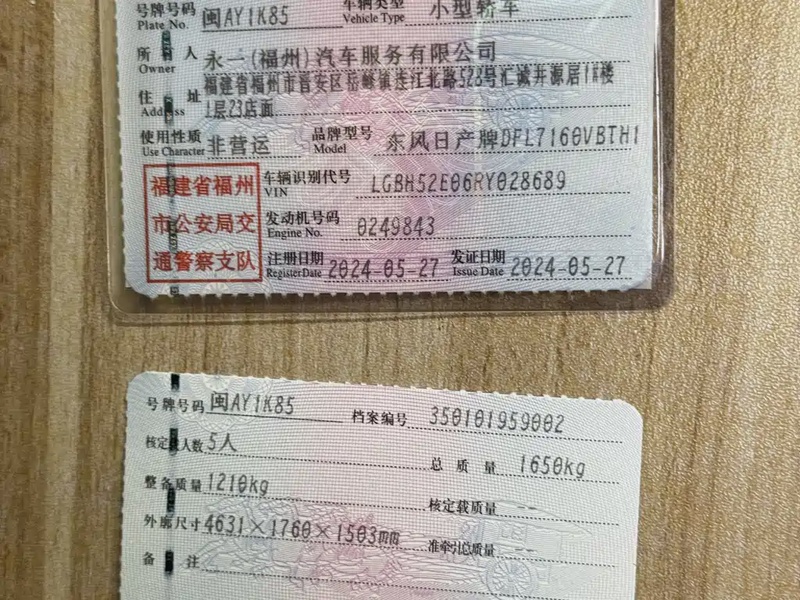 号牌号码 闽AY1K85 车辆类型 小型轿车
Plate No. Vehicle Type
所有人 永一(福州)汽车服务有限公司
Owner
住址 福建省福州市晋安区岳峰镇连江北路528号汇诚开源居1#楼
Address 1层23店面
使用性质 非营运 品牌型号 东风日产牌DFL7160VBTH1
Use Character Model
福建省福州 车辆识别代号 LGBH52E06RY028689
VIN
市公安局交 发动机号码 0249843
Engine No.
通警察支队 注册日期 2024-05-27 发证日期 2024-05-27
Register Date Issue Date
号牌号码 闽AY1K85 档案编号 350101959002
核定载人数 5人 总质量 1650kg
整备质量 1210kg 核定载质量 --
外廓尺寸 4631×1760×1503mm 准牵引总质量 --
备注